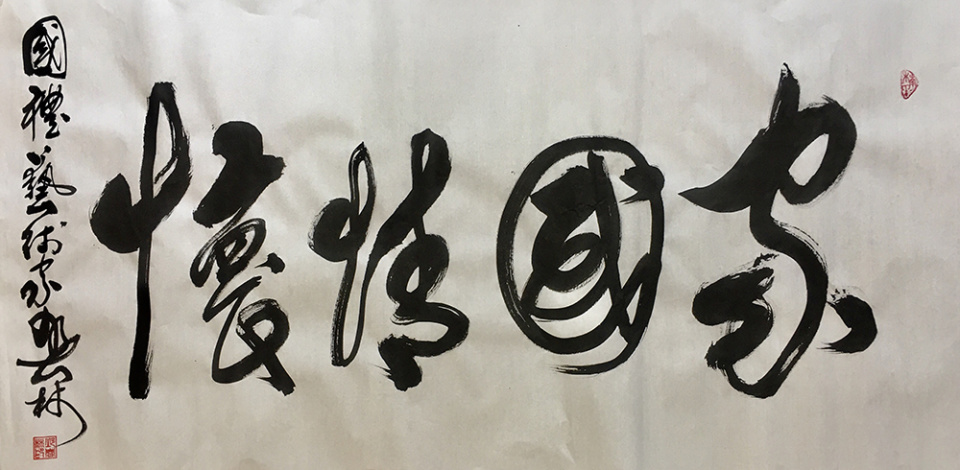 家國情懷
國禮藝術家 林